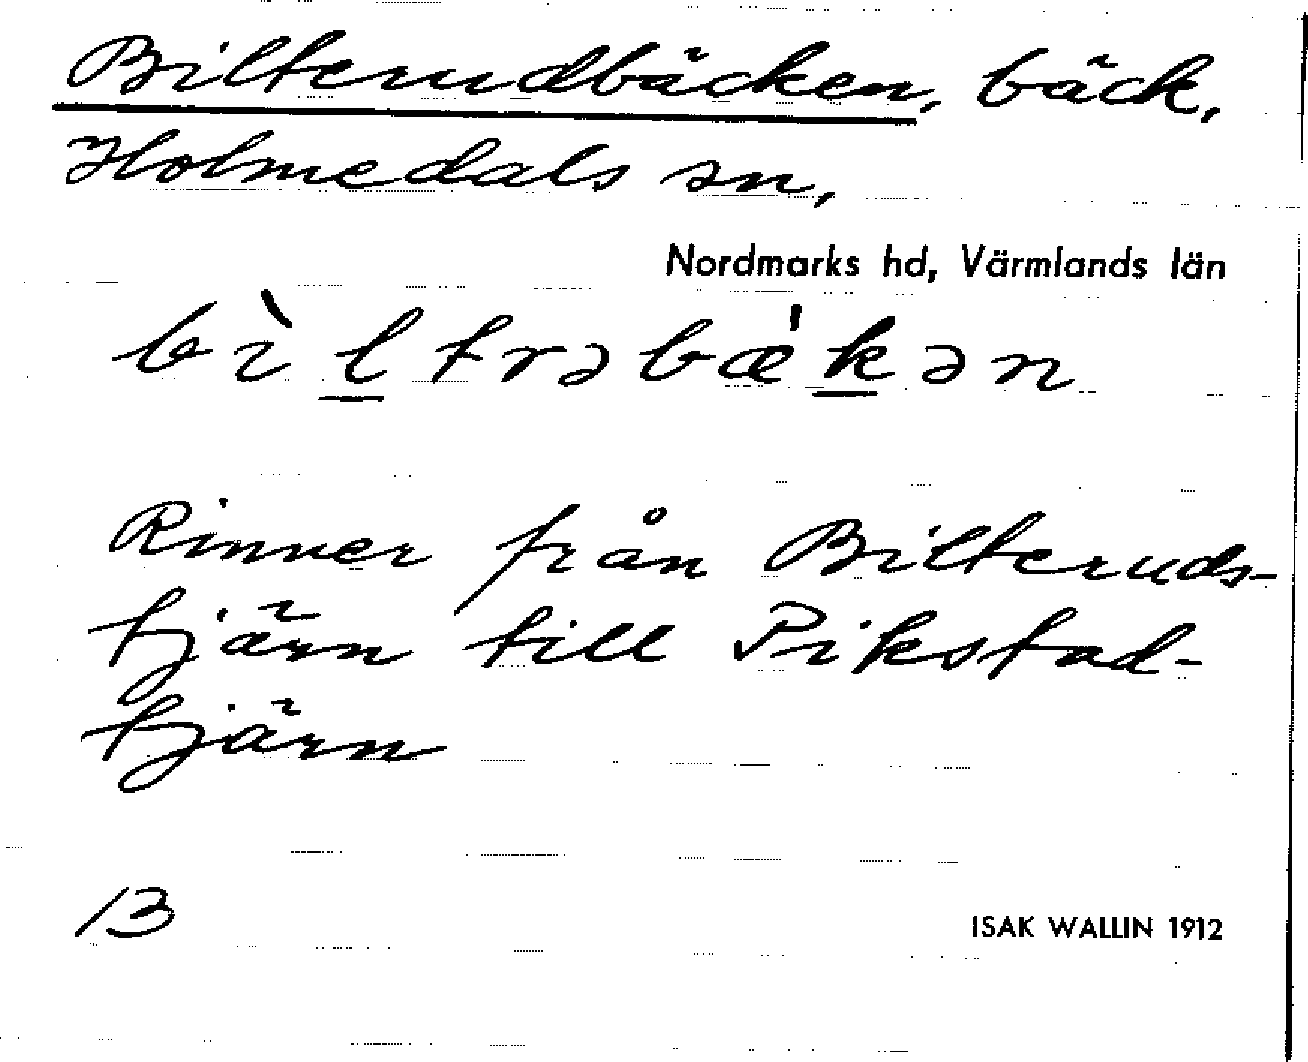 Bilterudbäcken, bäck,
Holmedals sn,
Nordmarks hd, Värmlands län
bìl̲trəbæ̍k̲ən
Rinner från Bilteruds-
tjärn till Pikstad-
tjärn
13
ISAK WALLIN 1912